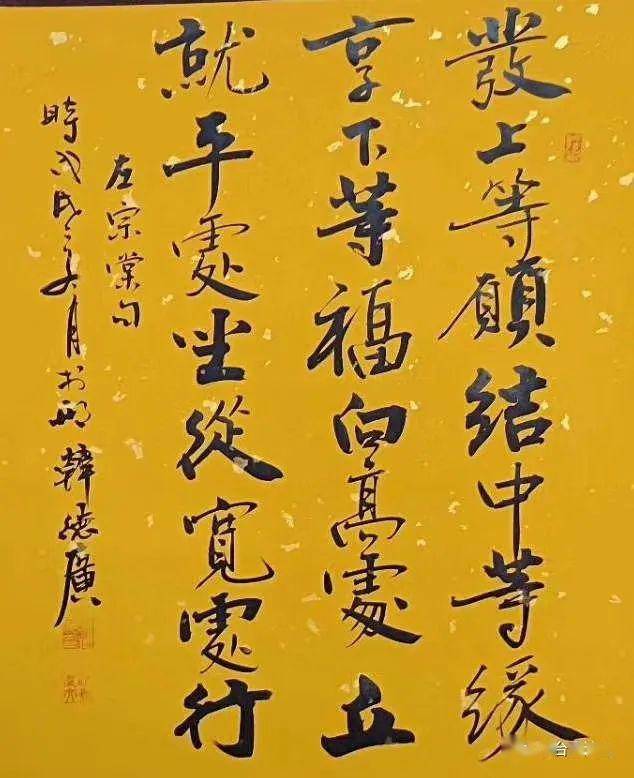 發上等願結中等緣
享下等福向高處立
就平處坐從寬處行
左宗棠句
時戊戌夏月於 韓德廣